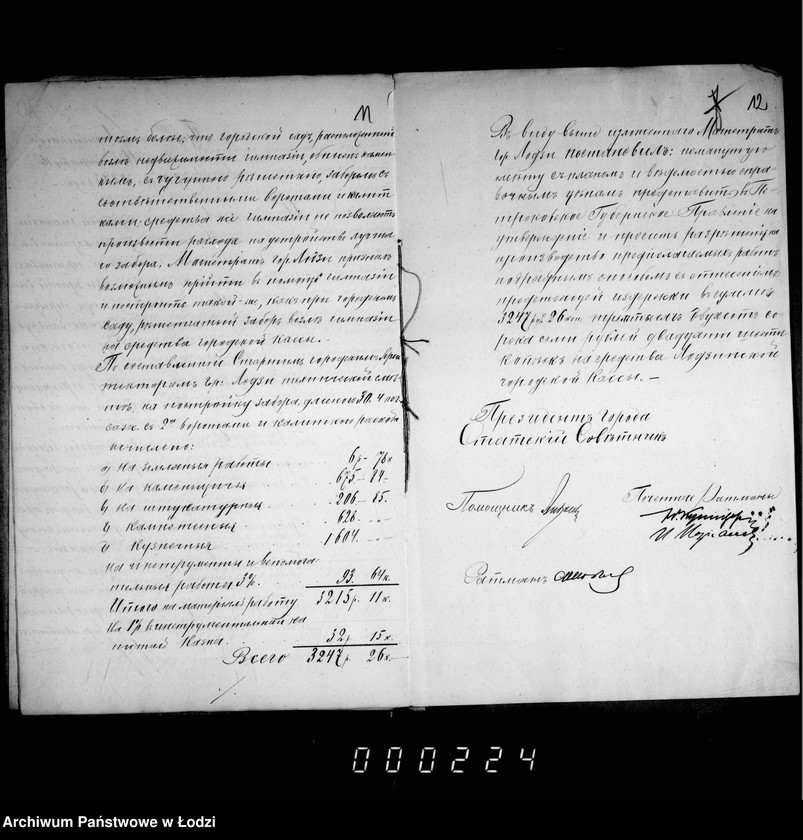 11
томъ более, что городской садъ, расположенный
возлѣ недвижимости гимназіи, обнесенъ камен-
нымъ, съ чугунного рѣшеткого, заборомъ съ
соотвѣтственными воротами и калит-
ками, средства же гимназіи не позволяютъ
произвести расхода на устройство лучша-
го забора, Магистратъ гор. Лодзи призналъ
возможнымъ прійти въ помощь гимназіи
и построить такой-же, какъ при городскомъ
саду, рѣшетчатый заборъ возлѣ гимназіи
на средства городской кассы. —
По составленной Старшимъ городскимъ Архи-
текторомъ гор. Лодзи технической смѣ-
тѣ на постройку забора, длиною 30.4 пог.
саж. съ 2мя воротами и калиткою расхода
исчислено:
а) на земляныя работы 6 р. 76 к
б) на каменщичьи 675 - 84 -
в) на штукатурныя 206 - 85.
г) Каменныя 628. - -
д) Кузнечныя 1604. - -
на инструменты и вспомога-
тельныя работы 3% 93. 64 к.
Итого на матеріалъ и работу 3215 р. 11 к.
На 1% въ инструментальный ка-
питалъ Казна. 32 р. 15 к.
Всего 3247 р. 26 к.
12
Въ виду выше изложеннаго Магистратъ
гор. Лодзи постановилъ: помянутую
смѣту съ планомъ и вѣдомостью спра-
вочнымъ цѣнамъ представить въ Пе-
троковское Губернское Правленіе на
утвержденіе и просить разрѣшенія на
производство предполагаемыхъ работъ
подряднымъ способомъ съ отнесеніемъ
предстоящей издержки въ суммѣ
3247 руб 26 коп трехъ тысячъ двухсотъ со-
рока семи рублей двадцати шести
копѣекъ на средства Лодзинской
городской Кассы. —
Президентъ города
Статскій Совѣтникъ
Помощникъ
Почетные Ратманы
Ратманъ
000224
Archiwum Państwowe w Łodzi